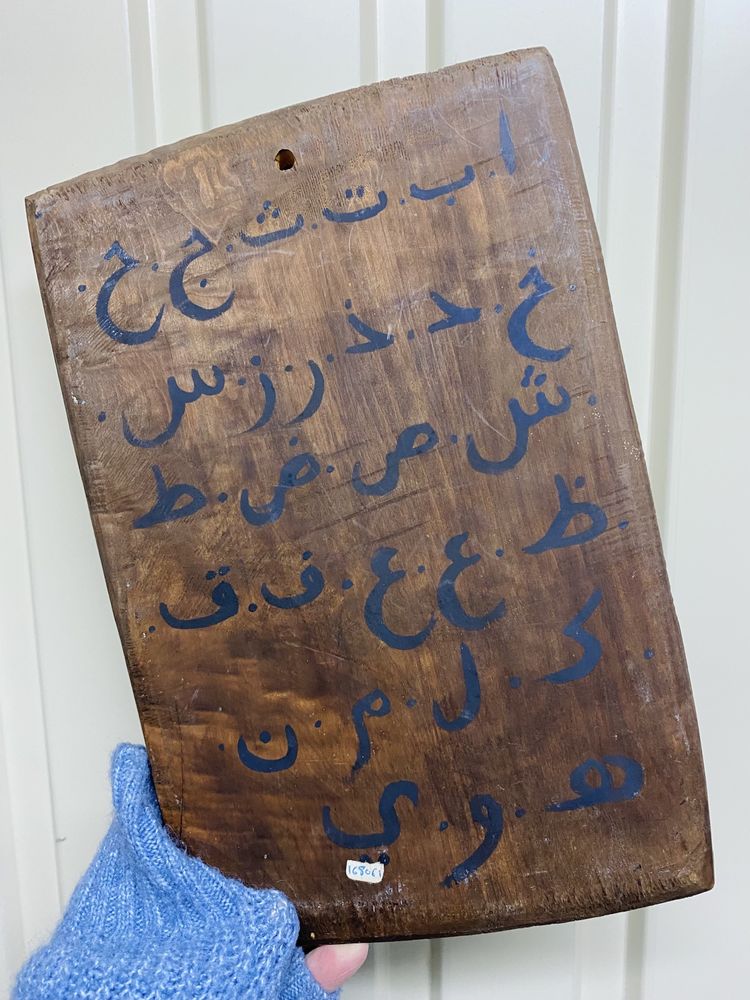 ا . ب . ت . ث . ج . ح .
. خ . د . ذ . ر . ز . س .
. ش . ص . ض . ط
. ظ . ع . ع . ف . ق .
. ك . ل . م . ن .
ه . و . ي
168061